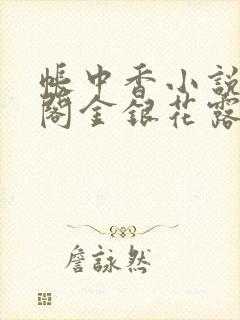 帳中香小說
閣金銀花露
詹詠然